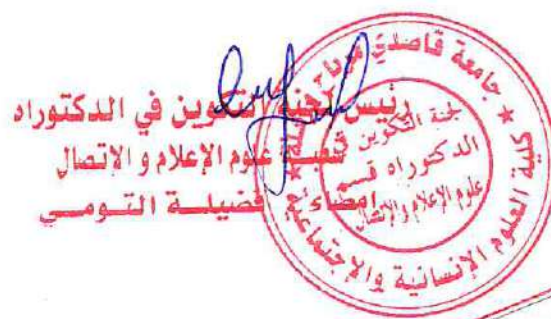 رئيس لجنة التكوين في الدكتوراه
شعبة علوم الإعلام و الإتصال
إمضاء: فضيلة التومي
جامعة قاصدي مرباح ورقلة
كلية العلوم الإنسانية والإجتماعية
لجنة التكوين
الدكتوراه قسم
علوم الإعلام والإتصال